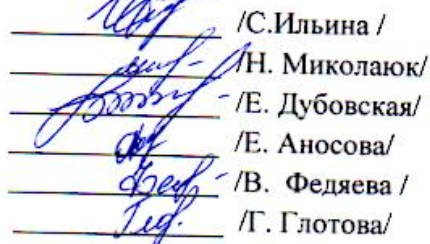 /С.Ильина /
/Н. Миколаюк/
/Е. Дубовская/
/Е. Аносова/
/В. Федяева /
/Г. Глотова/